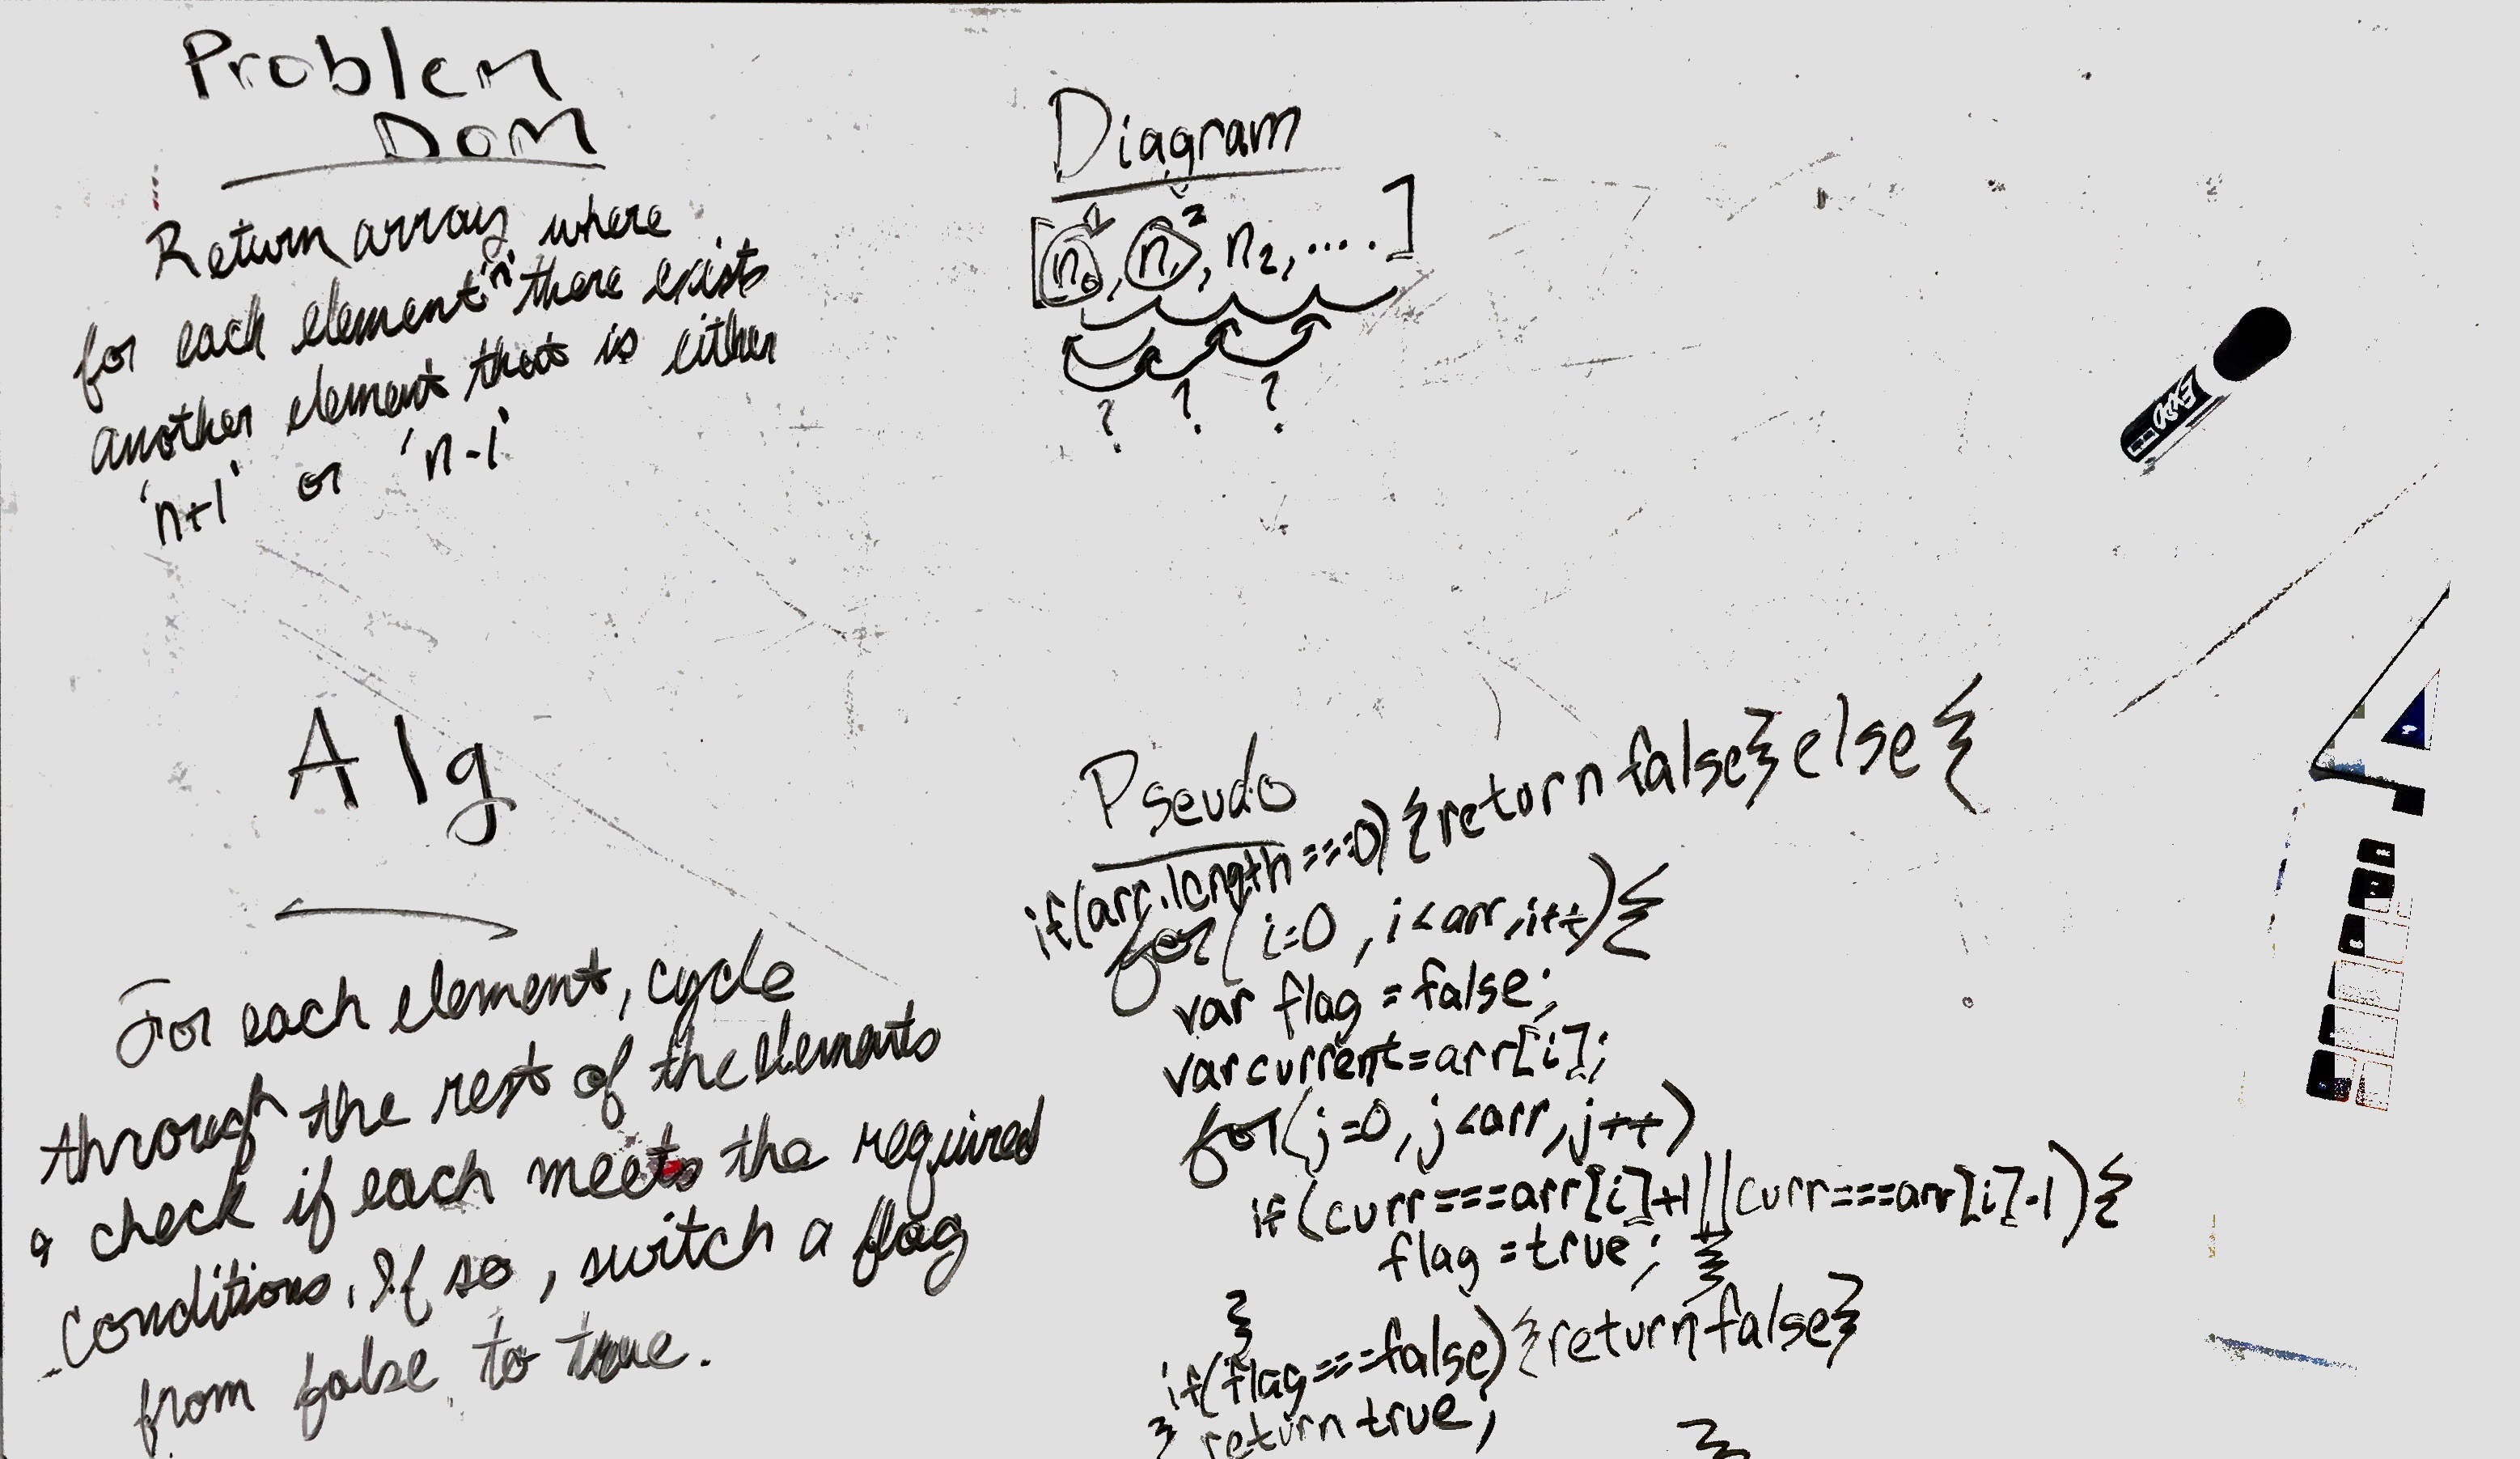 Problem
Dom
Return array where
for each element 'n' there exists
another element that is either
'n+1' or 'n-1'
Diagram
1 2
[n0, n1, n2, .....]
? ? ?
Alg
For each element, cycle
through the rest of the elements
a check if each meets the required
conditions. If so, switch a flag
from false to true.
Pseudo
if(arr.length===0){return false}else{
for(i=0, i<arr, i++){
var flag = false;
var current=arr[i];
for(j=0, j<arr, j++)
if(curr===arr[i]+1||curr===arr[i]-1){
flag = true; }
}
if(flag===false){return false}
} return true;
}